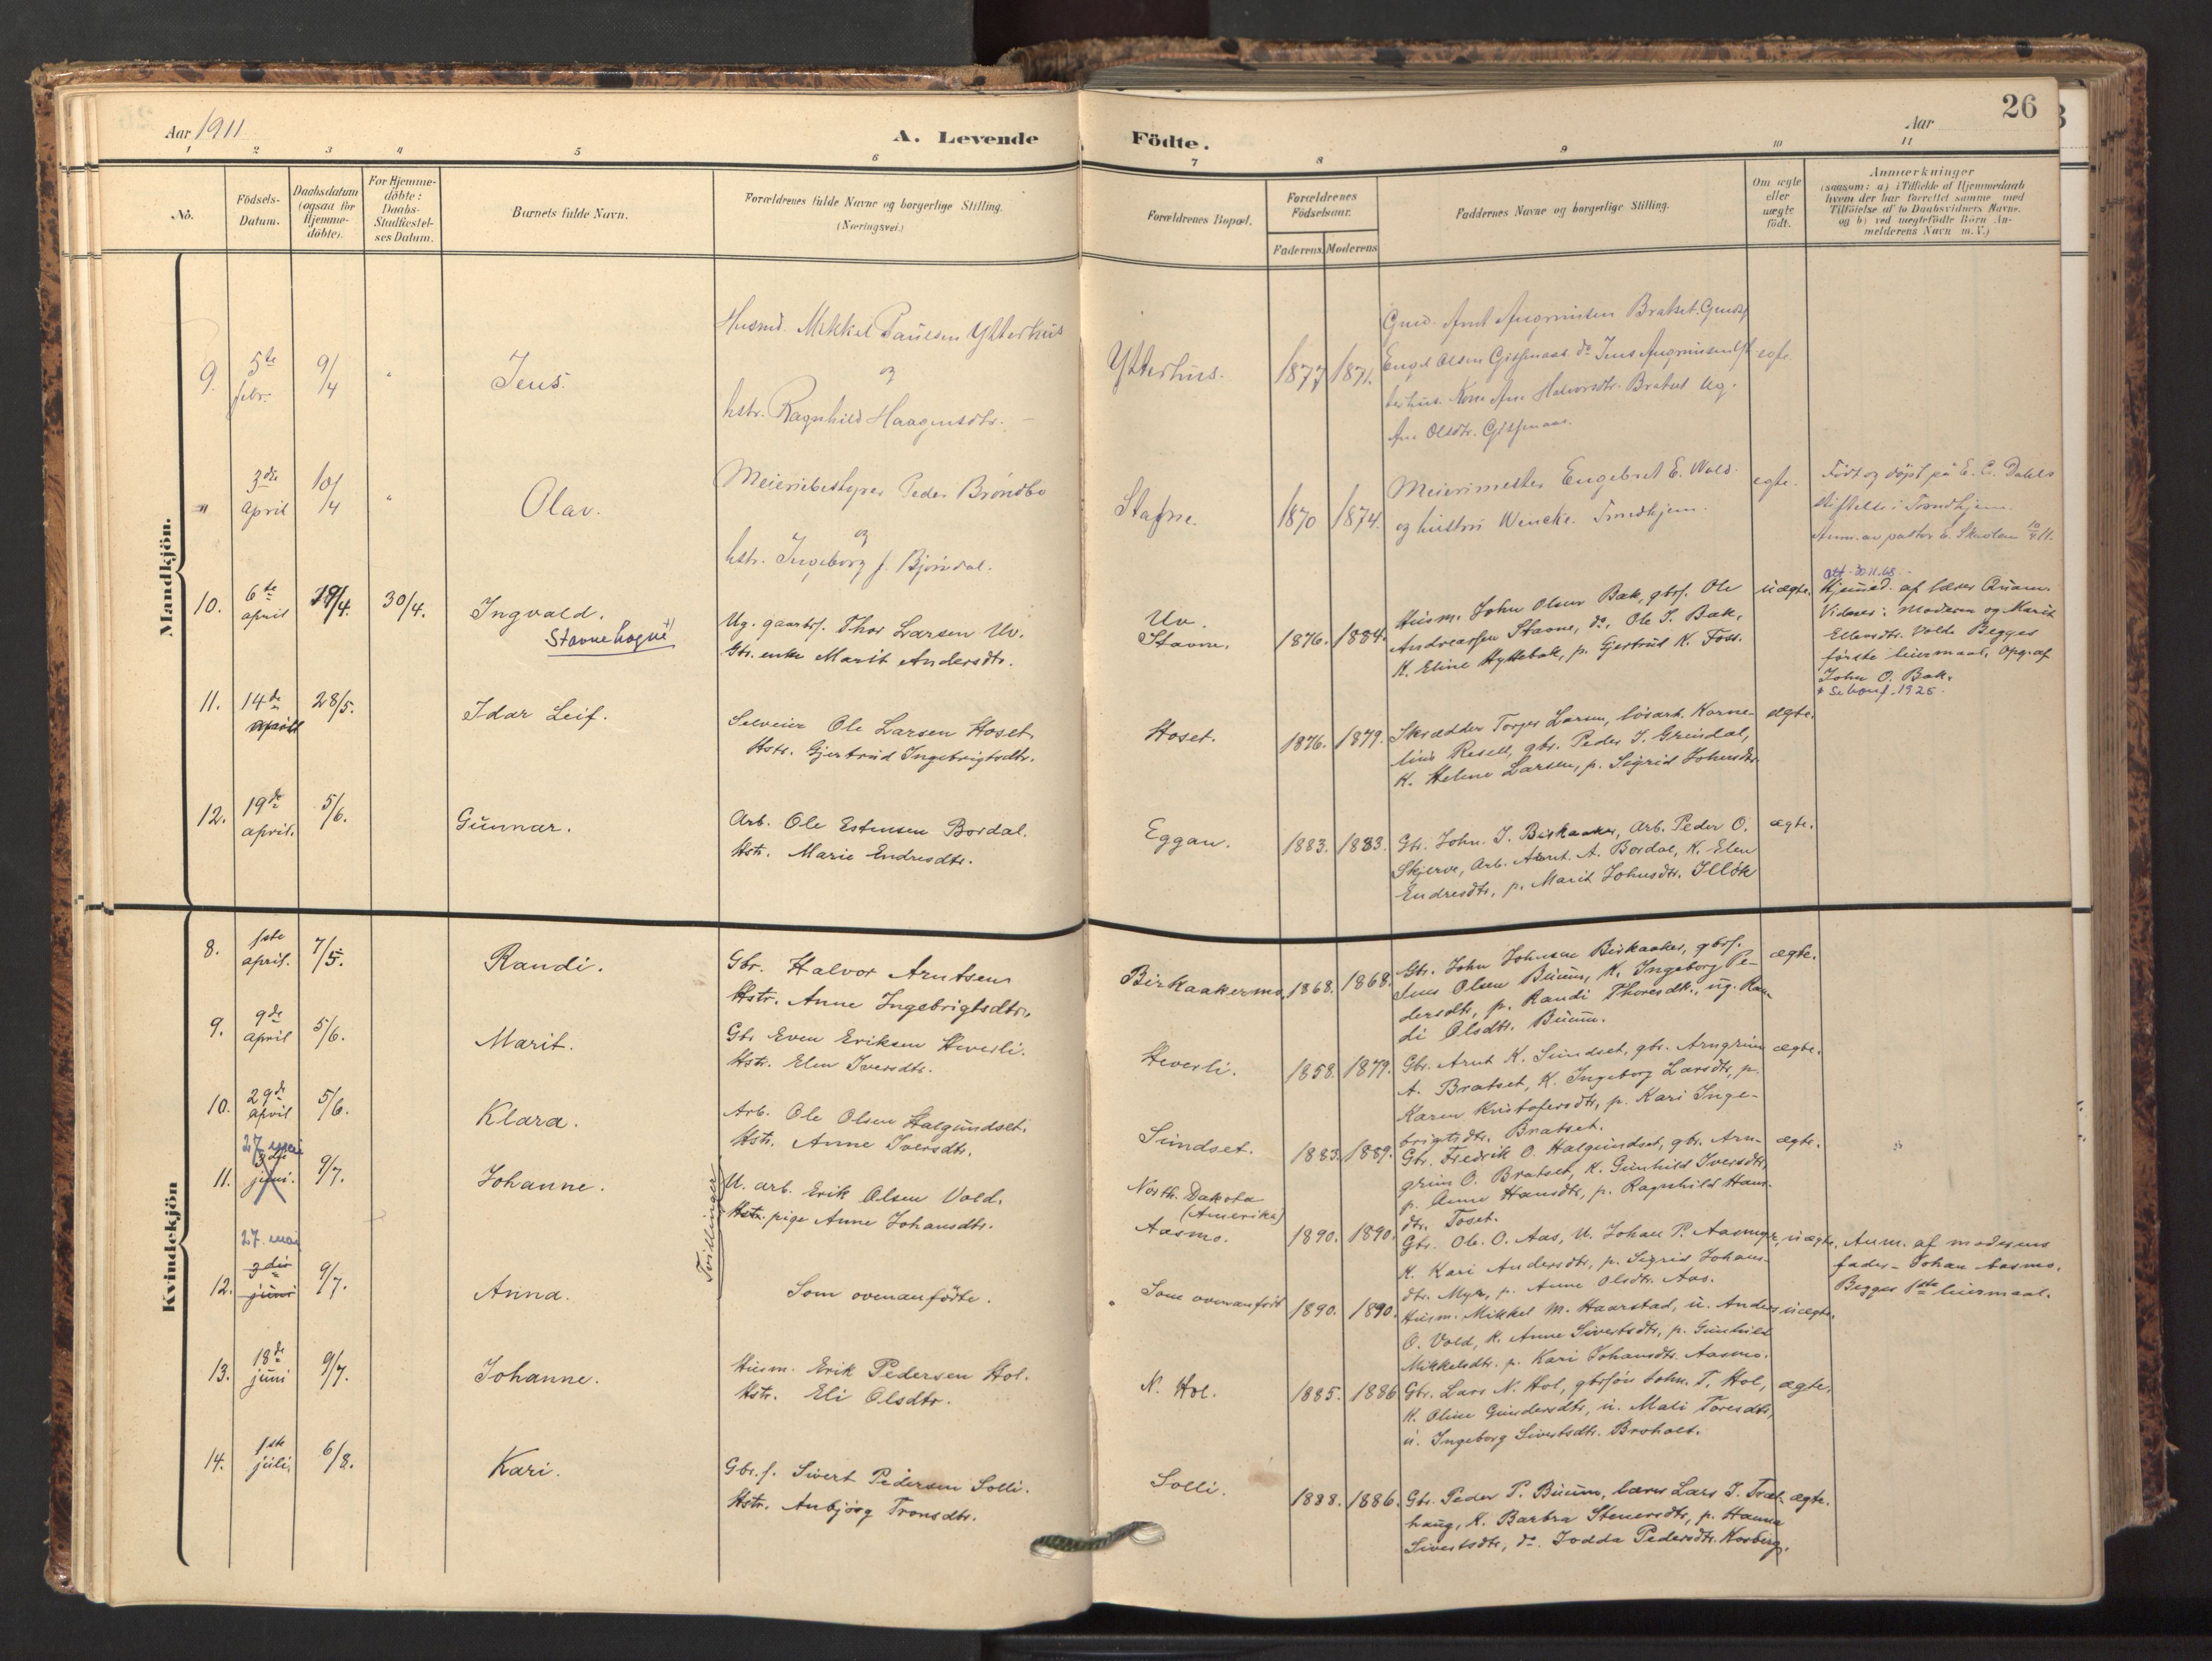 Aar 1911
A. Levende
Födte.
Aar
26
1 2 3 4 5 6 7 8 9 10 11
No.
Födsels-
Datum.
Daabsdatum
(ogsaa for
Hjemme-
döbte).
For Hjemme-
döbte:
Daabs-
Stadfæstel-
ses Datum.
Barnets fulde Navn.
Forældrenes fulde Navne og borgerlige Stilling.
(Næringsvei.)
Forældrenes Bopæl.
Forældrenes
Födselsaar.
Faderens Moderens
Faddernes Navne og borgerlige Stilling.
Om ægte
eller
uægte
födt.
Anmærkninger
(saasom: a) i Tilfælde af Hjemmedaab
hvem der har forrettet samme med
Tilföielse af to Daabsvidners Navne.
og b) ved uegtefödte Börn An-
melderens Navn m. V.)
Mandkjön.
9.
5te
febr.
9/4
"
Jens.
Husmd. Mikkel Paulsen Ytterhus
og
hstr. Ragnhild Haagensdtr.
Ytterhus.
1877
1871.
Gmd. Arnt Angrimsen Bratset. Gmdsf
Engel Olsen Gisnaas do Jens Angrimsen Yt
terhus. Kone Ane Halvorsdtr. Bratset Ug.
Ane Olsdtr. Gisnaas.
egte
"
3die
April
10/4
"
Olav.
Meieribestyrer Peder Bröndbo
og
hstr. Ingeborg f. Bjørndal.
Stavne.
1870
1874.
Meierimester Engebret E. Wold
og hustru Wencke. Trondhjem.
egte.
Født og døpt på E. C. Dahls
stiftelse i Trondhjem.
Anm. av pastor E. Skavlan 10/4 11.
10.
6te
april
/4.
30/4.
Ingvald.
Stavnehagne +)
Ug. gaarbr. Thor Larsen Uv.
Gbr. enke Marit Andersdtr.
Uv.
Stavne.
1876.
1884.
Husm. John Olsen Bak, gbrs. Ole
Andreassen Stavne, do, Ole J. Bak,
K. Eline Hyttebak, p. Gjertrud K. Foss.
uægte.
att. 30.11.48.
Hjemmed. af lærer Quam.
Vidner: Moderen og Marit
Ellensdtr. Volde Begges
förste leiermaal. Opg. af
John O. Bak.
1925.
11.
14de
april
28/5.
Idar Leif.
Selveier Ole Larsen Hoset.
Hstr. Gjertrud Ingebrigtsdtr.
Hoset.
1876.
1879.
Skrædder Torger Larsen, lösarb. Korne-
lius Resell, gbr. Peder J. Grindal,
K. Helene Larsen, p. Sigrid Johnsdtr.
ægte.
12.
19de
april.
5/6.
Gunnar.
Arb. Ole Estensen Bordal.
Hstr. Marie Endresdtr.
Eggan.
1883.
1883.
Gbr. John J. Birkaaker, Arb. Peder O.
Skjerve, Arb. Arnt A. Bordal, K. Elen
Endresdtr, p. Marit Johnsdtr. Illök
ægte.
Kvindekjön
8.
1ste
april.
7/5.
Randi.
Gbr. Halvor Arntsen
Hstr. Anne Ingebrigtsdtr.
Birkaakermo
1868.
1868.
Gbr. John Johnsen Birkaaker, gbrs.
Jens Olsen Buum, K. Ingeborg Pe-
dersdtr, p. Randi Thoresdtr., ug. Ran
di Olsdtr. Buum.
ægte.
9.
9de
april
5/6.
Marit.
Gbr Even Eriksen Heverli.
Hstr. Elen Iversdtr.
Heverli.
1858.
1879.
Gbr. Arnt K. Sundset, gbr. Arngrim
A. Bratset, K. Ingeborg Larsdtr, p.
Karen Kristofersdtr, p. Kari Inge-
brigtsdtr. Bratset.
ægte.
10.
29de
april
5/6.
Klara.
Arb. Ole Olsen Halgundset.
Hstr. Anne Iversdtr.
Sundset.
1883.
1889.
Gbr. Fredrik O. Halgundset, gbr. Arn-
grim O. Bratset, K. Gunhild Iversdtr,
p. Anne Hansdtr, p. Ragnhild Hans-
dtr. Toset.
ægte.
11.
27 mai
3die
juni.
9/7.
Johanne.
Tvillinger
U. arb. Erik Olsen Vold.
Hstr. pige Anne Johansdtr.
North. Dakota
(Amerika)
Aasmo.
1890.
1890.
Gbr. Ole. O. Aas, U. Johan P. Aasmyr,
K. Kari Andersdtr, p. Sigrid Johans-
dtr. Myr, p. Anne Olsdtr. Aas.
uægte.
Anm. af moderens
fader - Johan Aasmo.
Begges 1ste leiermaal.
12.
27. mai
3die
juni
9/7.
Anna.
Som ovenanfödte.
Som ovenanfödt
1890.
1890.
Husm. Mikkel M. Haarstad, u. Anders
O. Vold, K. Anne Sivertsdtr, p. Gunhild
Mikkelsdtr. p. Kari Johansdtr. Aasmo.
uægte.
13.
18de
juni
9/7.
Johanne.
Husm. Erik Pedersen Hol.
Hstr. Eli Olsdtr.
N. Hol.
1885.
1886
Gbr. Lars N. Hol, gbrsön John. T. Hol,
K. Oline Gundersdtr, u. Mali Toresdtr,
u. Ingeborg Sivertsdtr. Broholt.
ægte.
14.
1ste
juli.
6/8.
Kari.
Gbr. f. Sivert Pedersen Solli.
Hstr. Anbjörg Tronsdtr.
Solli.
1888.
1886.
Gbr. Peder P. Buum, lærer Lars J. Træt-
haug, K. Barbra Stenersdtr, p. Hanna
Sivertsdtr, do. Jodda Pedersdtr. Kosberg.
ægte.